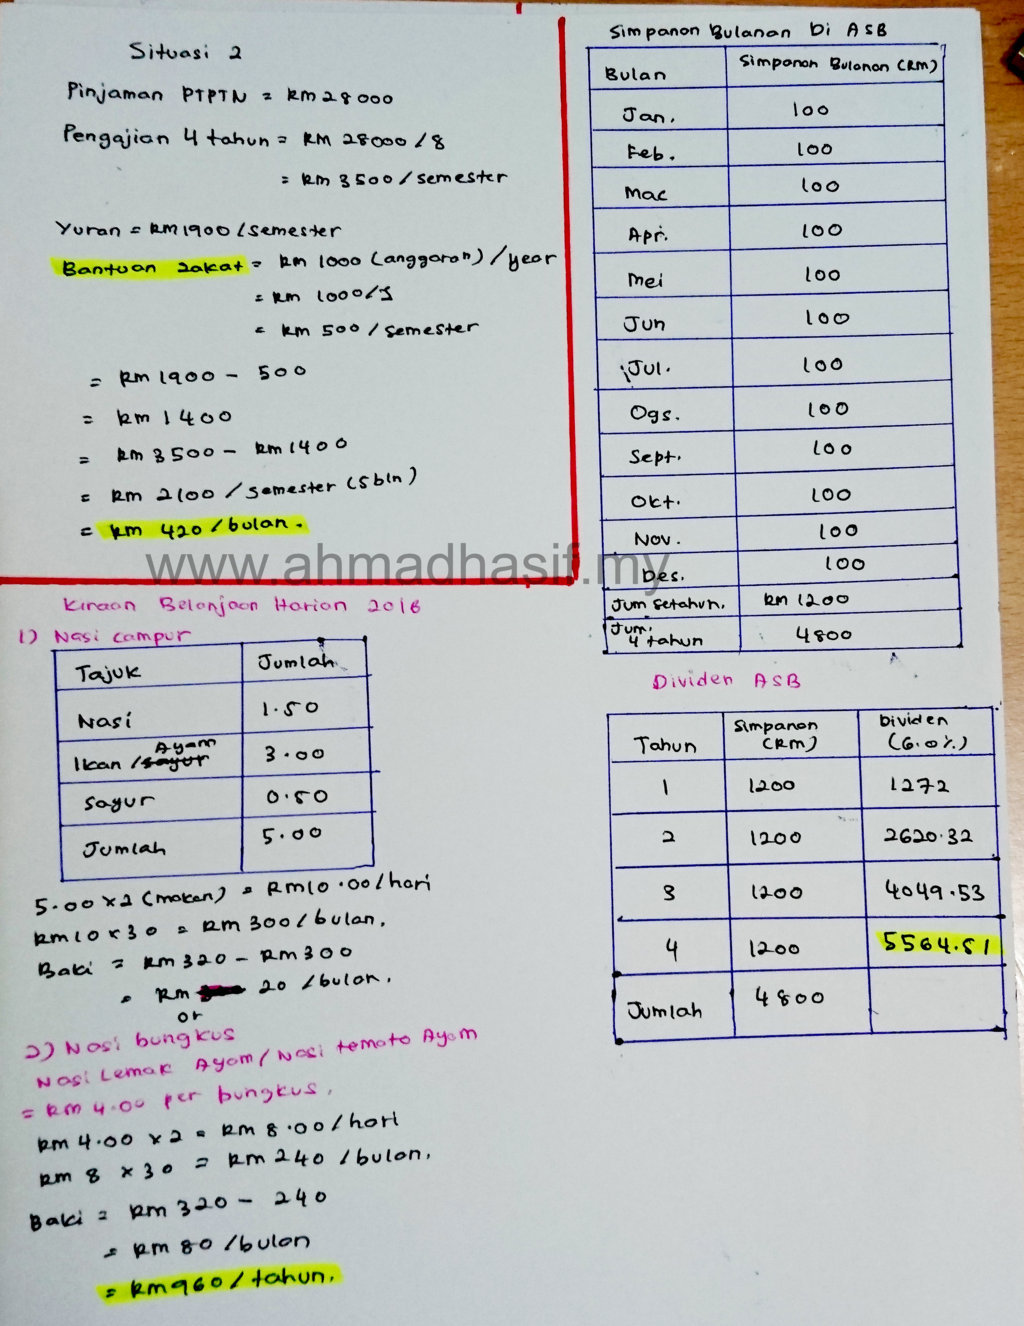 Situasi 2
Pinjaman PTPTN = RM28000
Pengajian 4 tahun = RM 28000 / 8
= RM 3500 / semester
Yuran = RM1900 / semester
Bantuan zakat = RM 1000 (anggaran) / year
= RM 1000 / 2
= RM 500 / semester
= RM 1900 - 500
= RM 1400
= RM 3500 - RM 1400
= RM 2100 / semester (5 bln)
= RM 420 / bulan.
www.ahmadhasif.my
Kiraan Belanjaan Harian 2016
1) Nasi campur
Tajuk Jumlah
Nasi 1.50
Ikan / sayur Ayam 3.00
Sayur 0.50
Jumlah 5.00
5.00 x 2 (makan) = RM10.00 / hari
RM10 x 30 = RM 300 / bulan.
Baki = RM 320 - RM 300
= RM 20 / bulan.
or
2) Nasi bungkus
Nasi Lemak Ayam / Nasi temato Ayam
= RM 4.00 per bungkus.
RM 4.00 x 2 = RM 8.00 / hari
RM 8 x 30 = RM 240 / bulan.
Baki = RM 320 - 240
= RM 80 / bulan
= RM960 / tahun.
Simpanan Bulanan Di ASB
Bulan Simpanan Bulanan (RM)
Jan. 100
Feb. 100
Mac 100
Apr. 100
Mei 100
Jun 100
Jul. 100
Ogs. 100
Sept. 100
Okt. 100
Nov. 100
Des. 100
Jum setahun. RM 1200
Jum. 4 tahun 4800
Dividen ASB
Tahun Simpanan (RM) Dividen (6.0%)
1 1200 1272
2 1200 2620.32
3 1200 4049.53
4 1200 5564.51
Jumlah 4800